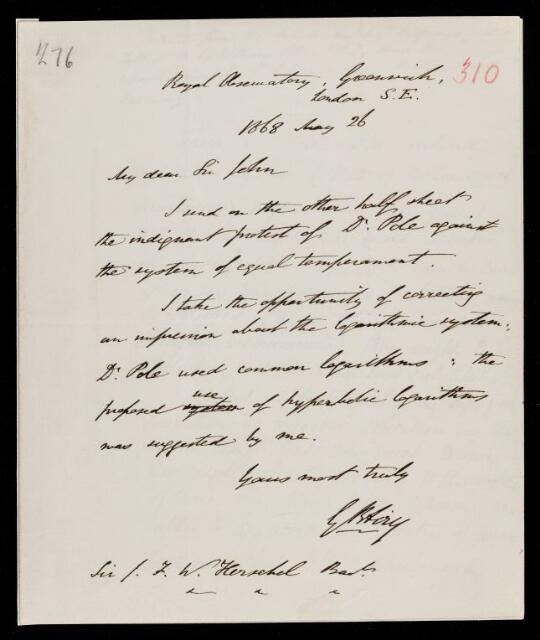 276
310
Royal Observatory, Greenwich,
London S.E.
1868 May 26
My dear Sir John
I send on the other half sheet
the indignant protest of Dr. Pole against
the system of equal temperament.
I take the opportunity of correcting
an impression about the logarithmic system:
Dr. Pole used common logarithms: the
use
proposed system of hyperbolic logarithms
was suggested by me.
Yours most truly
G B Airy
Sir J. F. W. Herschel Bart.